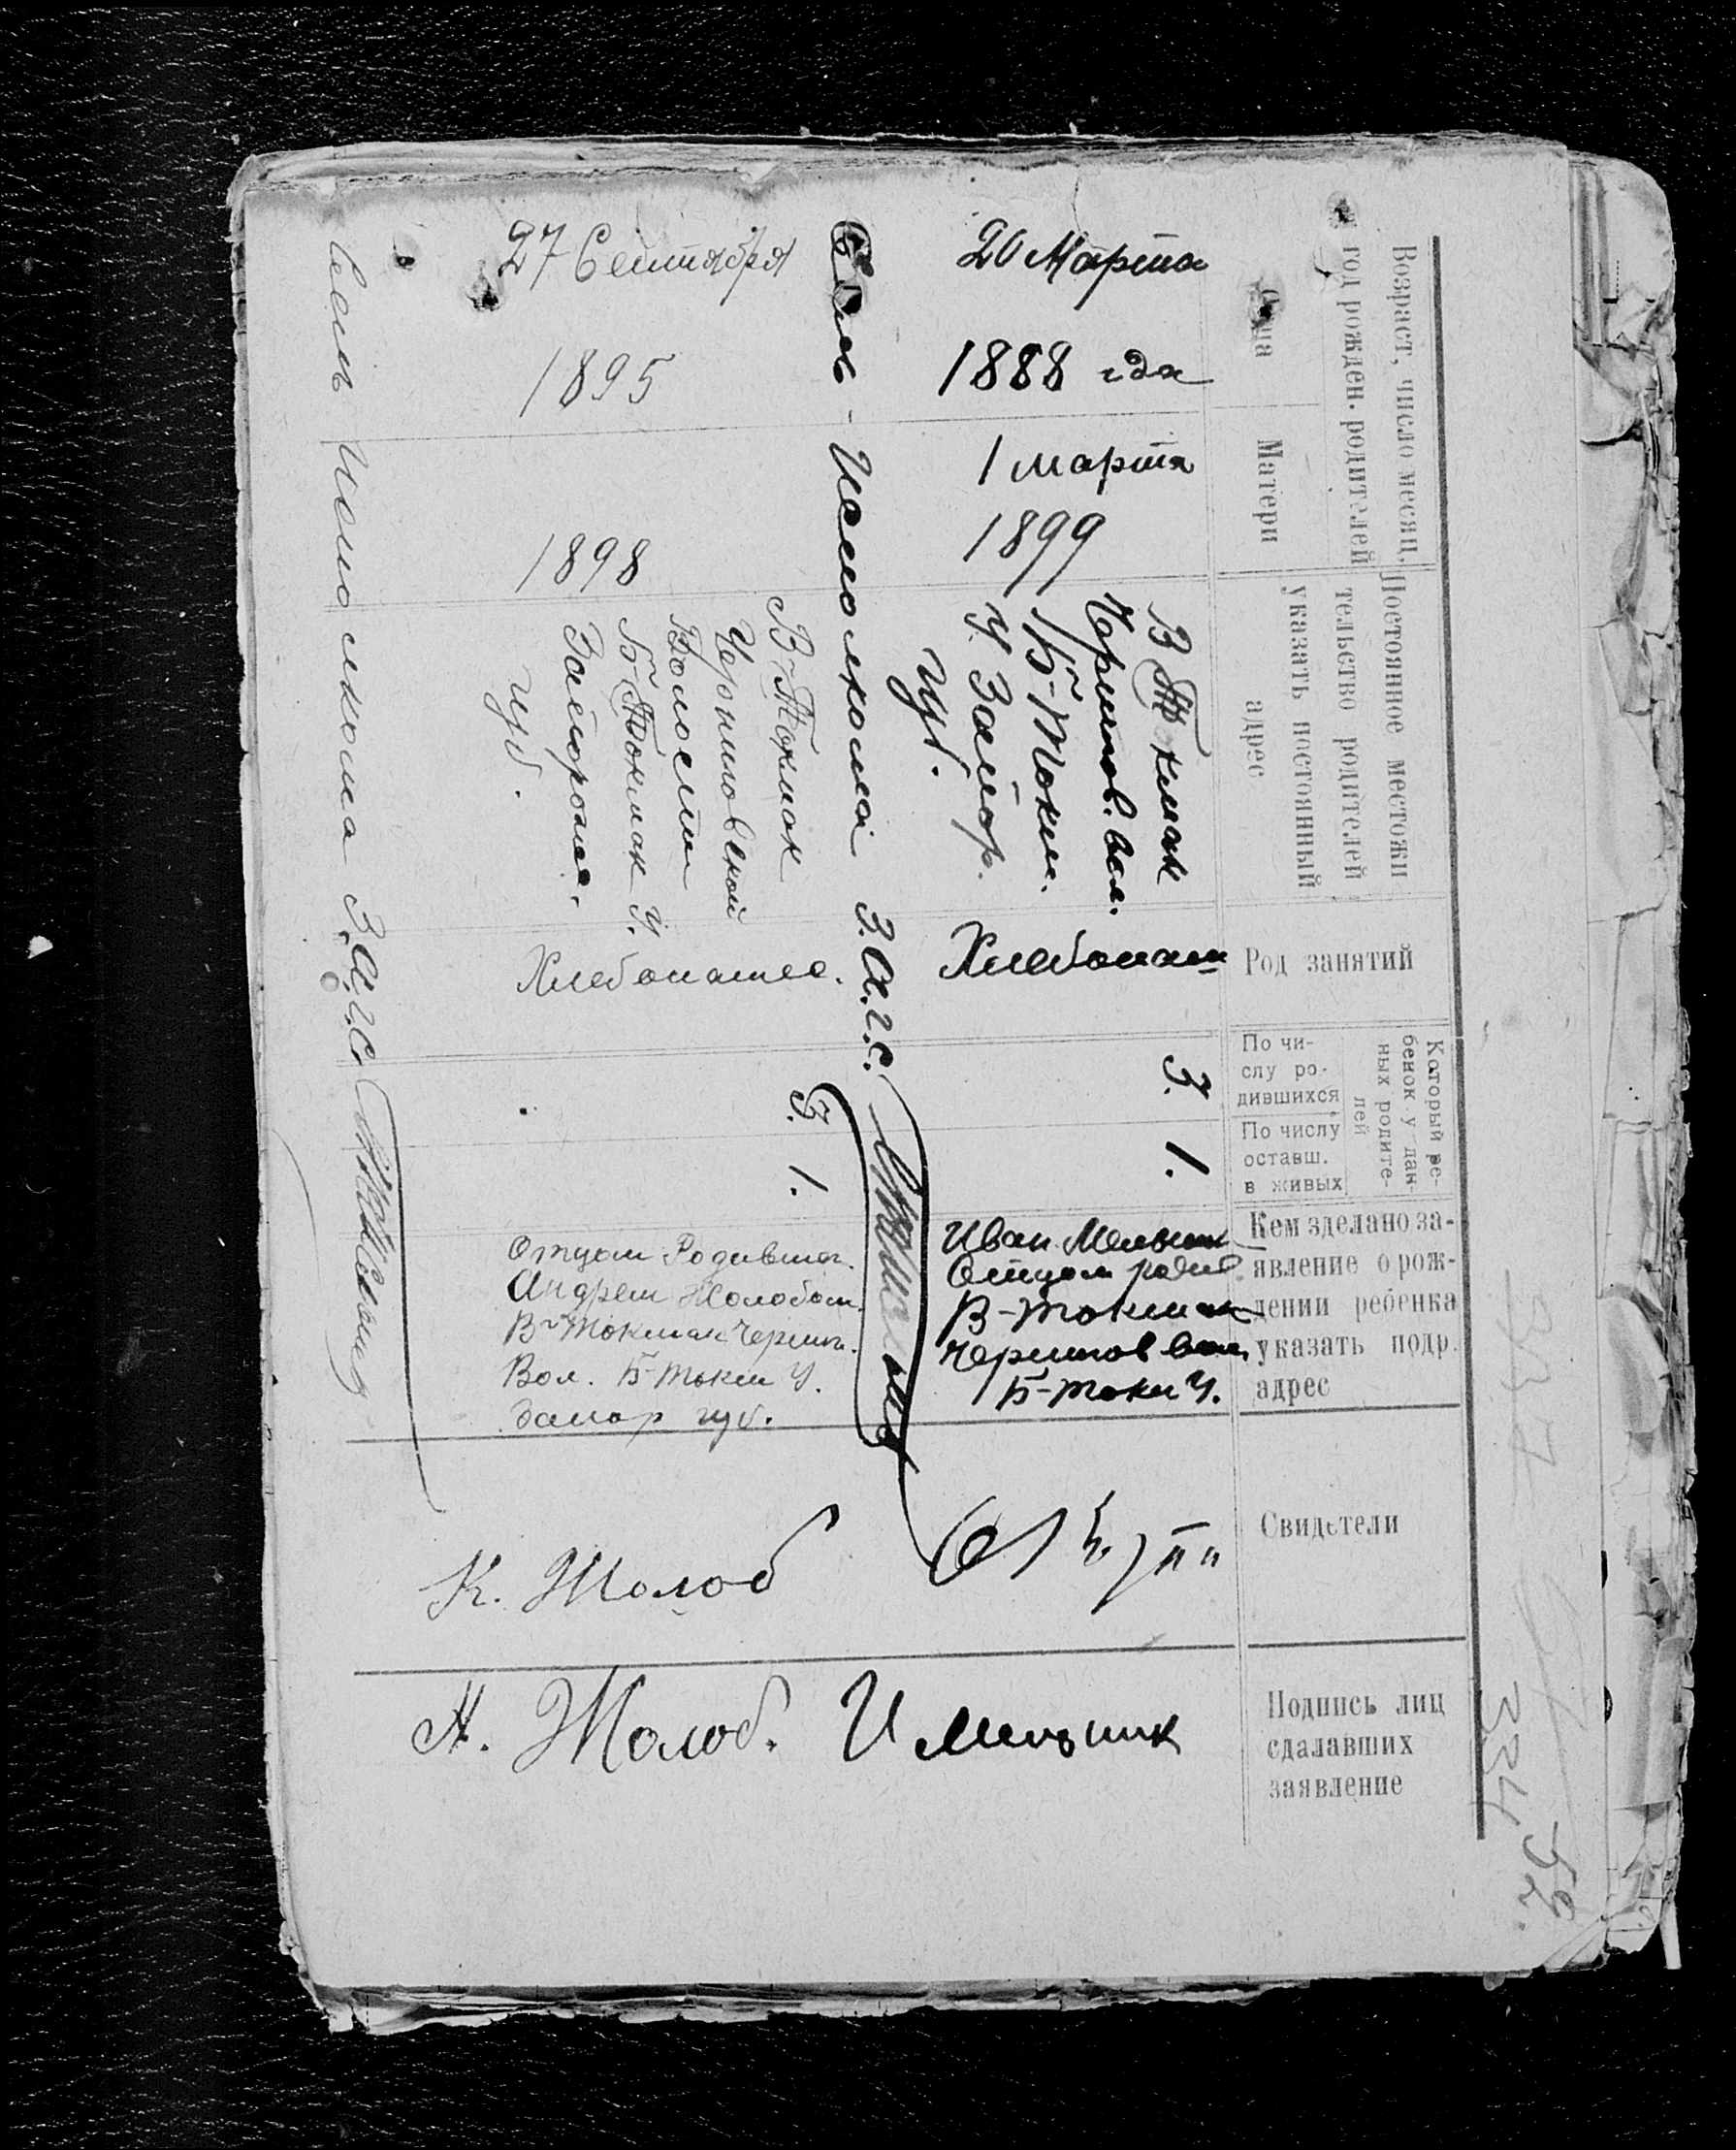 Возраст, число месяц,
год рожден. родителей
Отца
Матери
Постоянное местожи
тельство родителей
указать постоянный
адрес
Род занятий
Который ре-
бенок у дан-
ных родите-
лей
По чи-
слу ро-
дившихся
По числу
оставш.
в живых
Кем зделано за-
явление о рож-
дении ребенка
указать подр.
адрес
Свидетели
Подпись лиц
сдалавших
заявление
20 Марта
1888 года
1 марта
1899
В Токмак
Чернигов. вол.
Б-Токм.
У. Запор.
Губ.
Хлебопаш
3.
1.
Иван Мельник
Отцом родив.
В-Токмак
Чернигов вол.
Б-Токм У.
И Мельник
Исполкома З.А.Г.С.
27 Сентября
1895
1898
В-Токмак
Черниговской
Волости
Б-Токмак У.
Запорожс.
губ.
Хлебопашес.
3.
1.
Отцом Родивш.
Андреем Жолобом.
В-Токмак Черниг.
Вол. Б-Токм У.
Запор губ.
К. Жолоб
А. Жолоб.
Исполкома З.А.Г.С.
337
334
52.